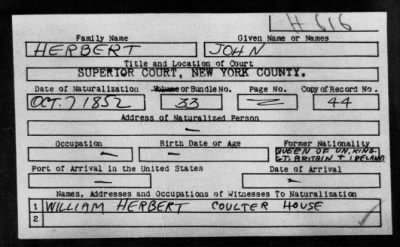 H 616
Family Name Given Name or Names
HERBERT JOHN
Title and Location of Court
SUPERIOR COURT, NEW YORK COUNTY.
Date of Naturalization Volume or Bundle No. Page No. Copy of Record No.
OCT. 7 1852 33 — 44
Address of Naturalized Person
—
Occupation Birth Date or Age Former Nationality
— — QUEEN OF UN. KING.
GT. BRITAIN + IRELAND
Port of Arrival in the United States Date of Arrival
— —
Names, Addresses and Occupations of Witnesses To Naturalization
1 WILLIAM HERBERT COULTER HOUSE
2